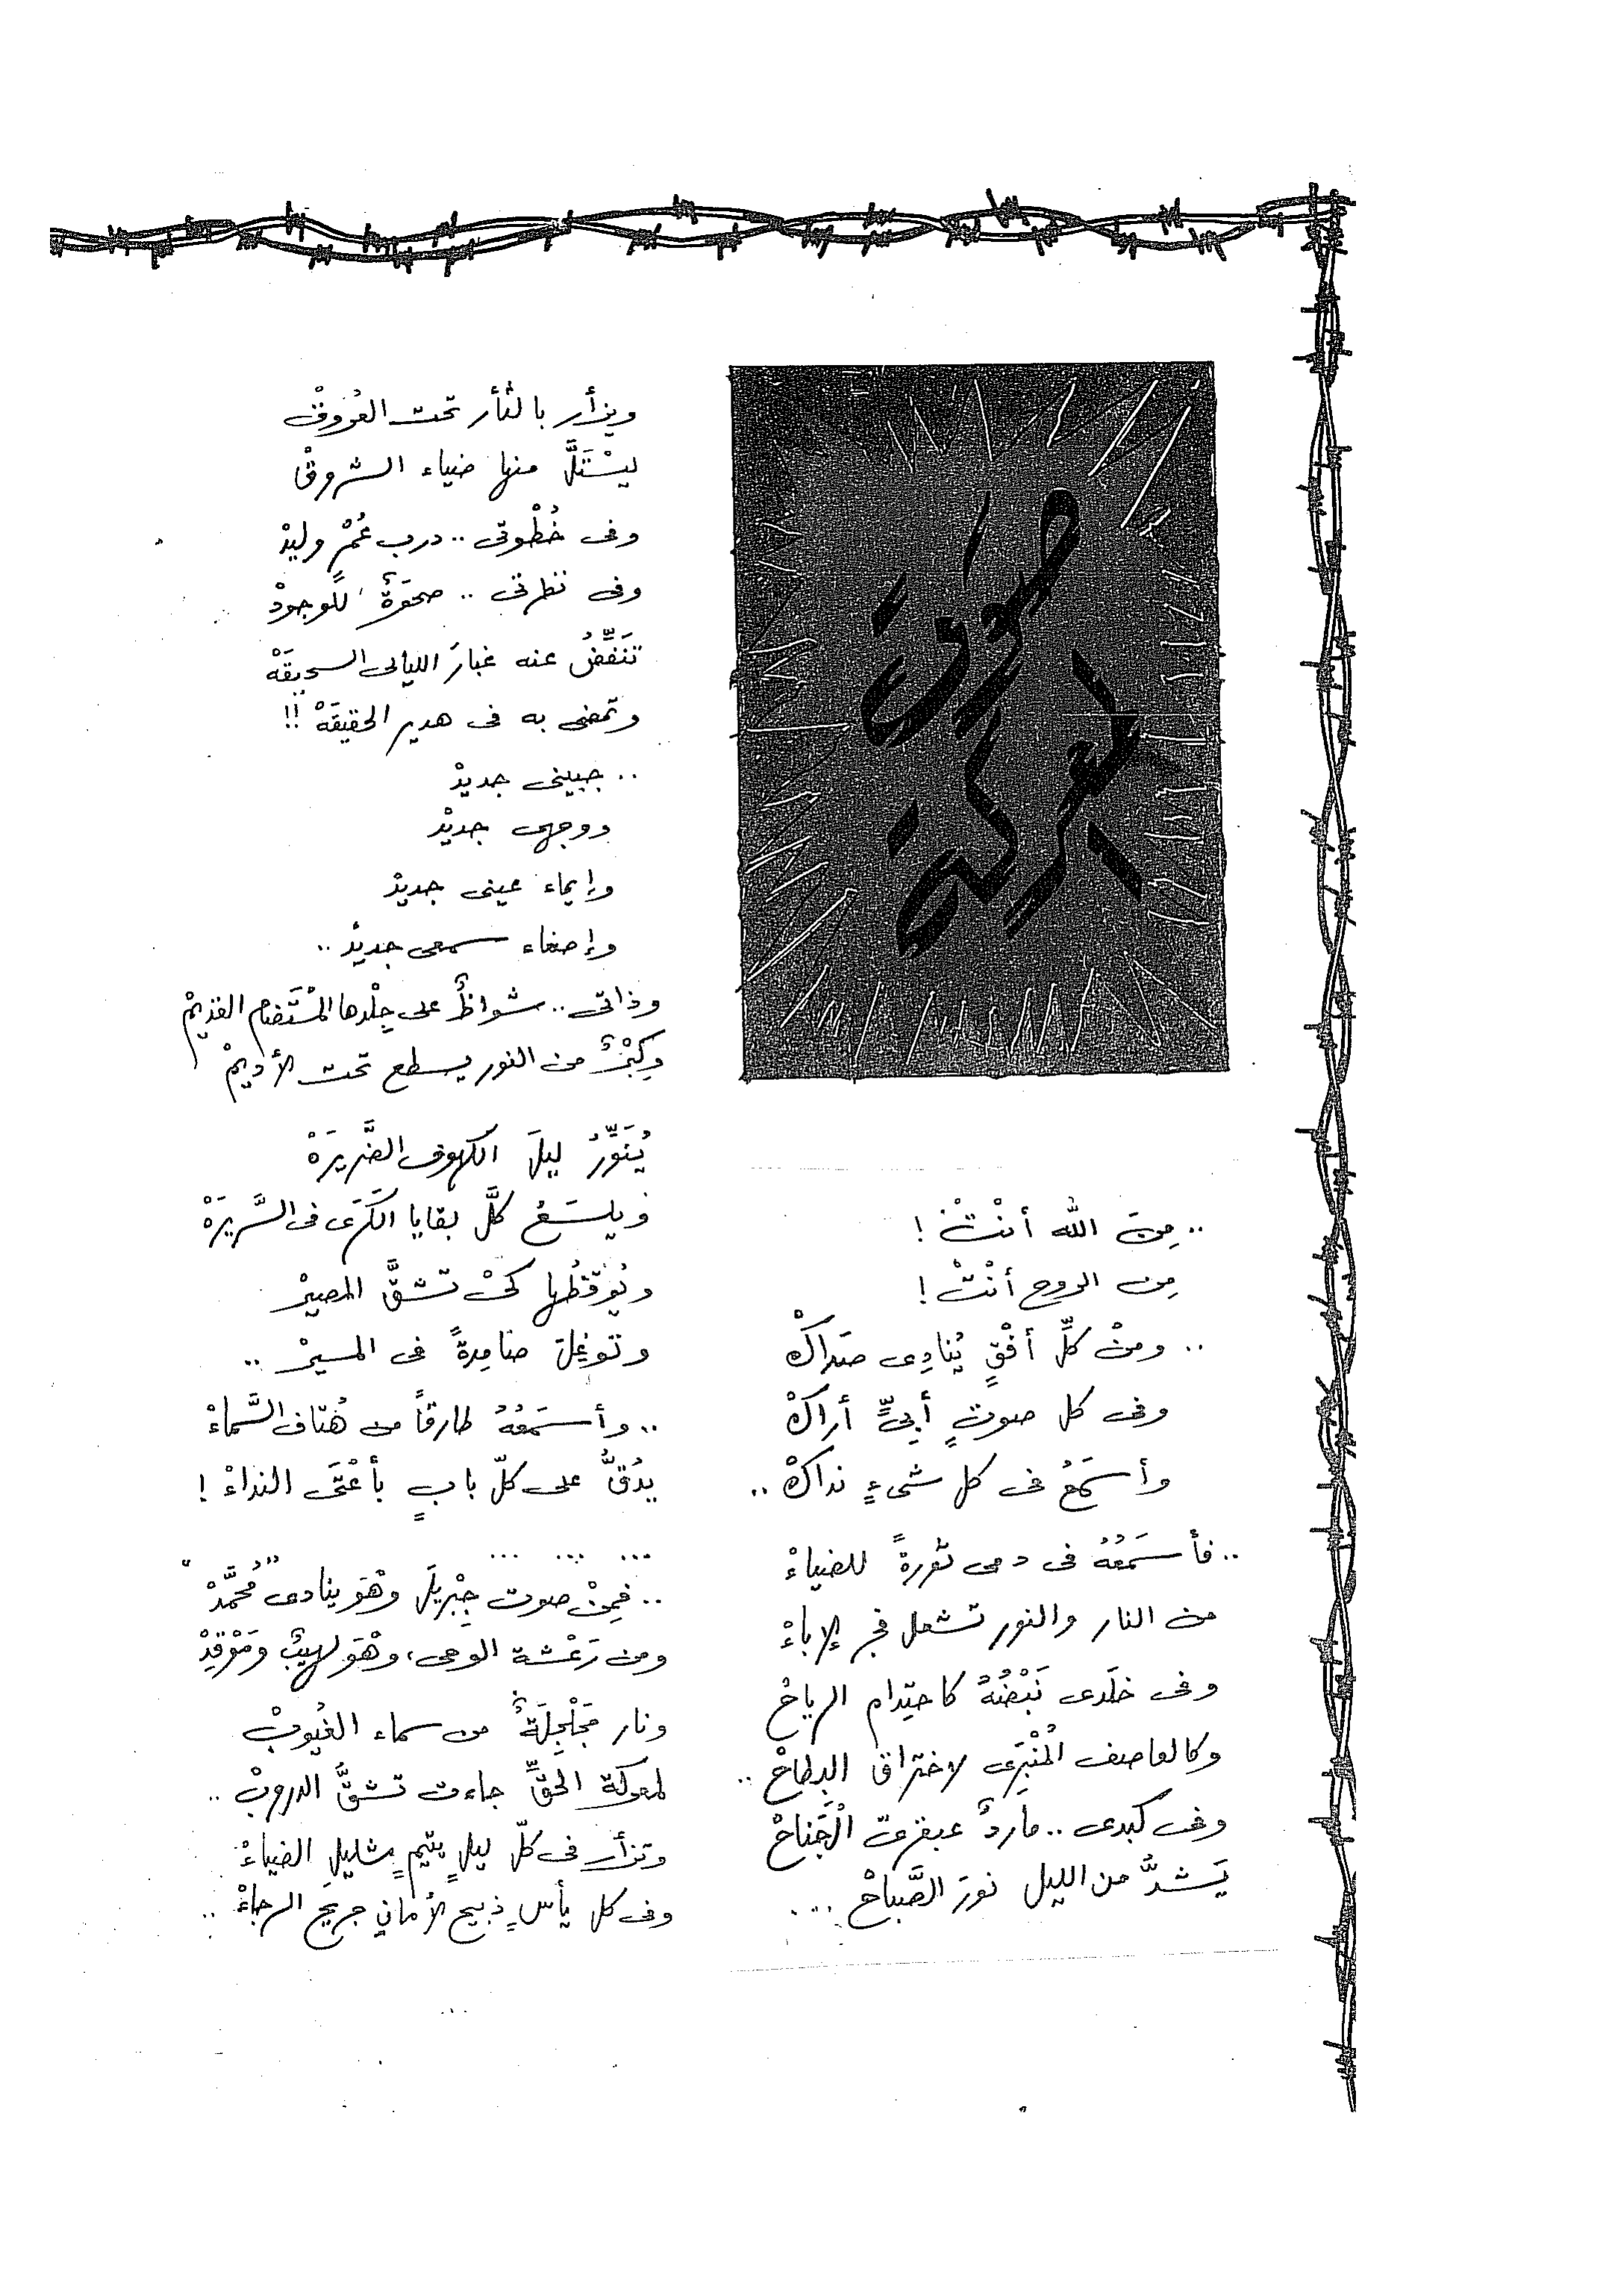 صوت
المعركة
.. مِنَ الله أنْتْ !
مِن الروح أنْتْ !
.. ومنْ كلِّ أفْقٍ يُنادِى صَداكْ
وفى كل صوتٍ أبىٍّ أراكْ
وأسمَعُ فى كل شىءٍ نداكْ ..
.. فأسمَعُهُ فى دمى ثورةً للضياءْ
من النار والنور تشعل فجر الإباءْ
وفى خلَدى نَبْضُهُ كاحتِدام الرياحْ
وكالعاصف المُنْبَرِى لاختراق البطاحْ ..
وفى كبدى .. ماردٌ عبقرىّ الْجَناحْ
يَشدُّ من الليل نورَ الصَّباحْ ...
ويزأر بالثأر تحت العُروقْ
ليسْتَلَّ منها ضياء الشروقْ
وفى خُطْوتى .. درب عُمْرٍ وليدْ
وفى نظرتى .. صحوَةٌ للوجودْ
تنَفِّضُ عنه غبارَ الليالى السحيقَهْ
وتمضى به فى هدير الحقيقَهْ !!
.. جبينى جديدْ
ووجهى جديدْ
وإيماء عينى جديدْ
وإصغاء سمعى جديدْ ..
وذاتى .. شواظٌ على جِلْدها المُسْتَضام القديمْ
وكِبْرٌ من النور يسطع تحت الأديمْ
يُنَوِّرُ ليلَ الكهوف الضَّريرَهْ
ويلسَعُ كلَّ بقايا الكَرَى فى السَّريرَهْ
ويُوقظُها كىْ تشقَّ المصيرْ
وتوغِلَ صامِدةً فى المسيرْ ..
.. وأسمَعُهُ طارقاً من هُتاف السَّماءْ
يدُقُّ على كلّ بابٍ بأعْتَى النداءْ !
... ... ...
.. فمِنْ صوت جِبْريلَ وهْوَ ينادى "مُحمَّدْ"
ومن رَعْشة الوحى، وهْوَ لهيبٌ ومَوْقِدْ
ونار مُجَلْجِلَةٌ من سماء الغُيوبْ
لمعركة الحقِّ جاءت تشقَّ الدروبْ ..
وتزأر فى كلّ ليلٍ يتيمٍ شليلِ الضياءْ
وفى كل يأسٍ ذبيح الأمانى جريح الرجاءْ ..